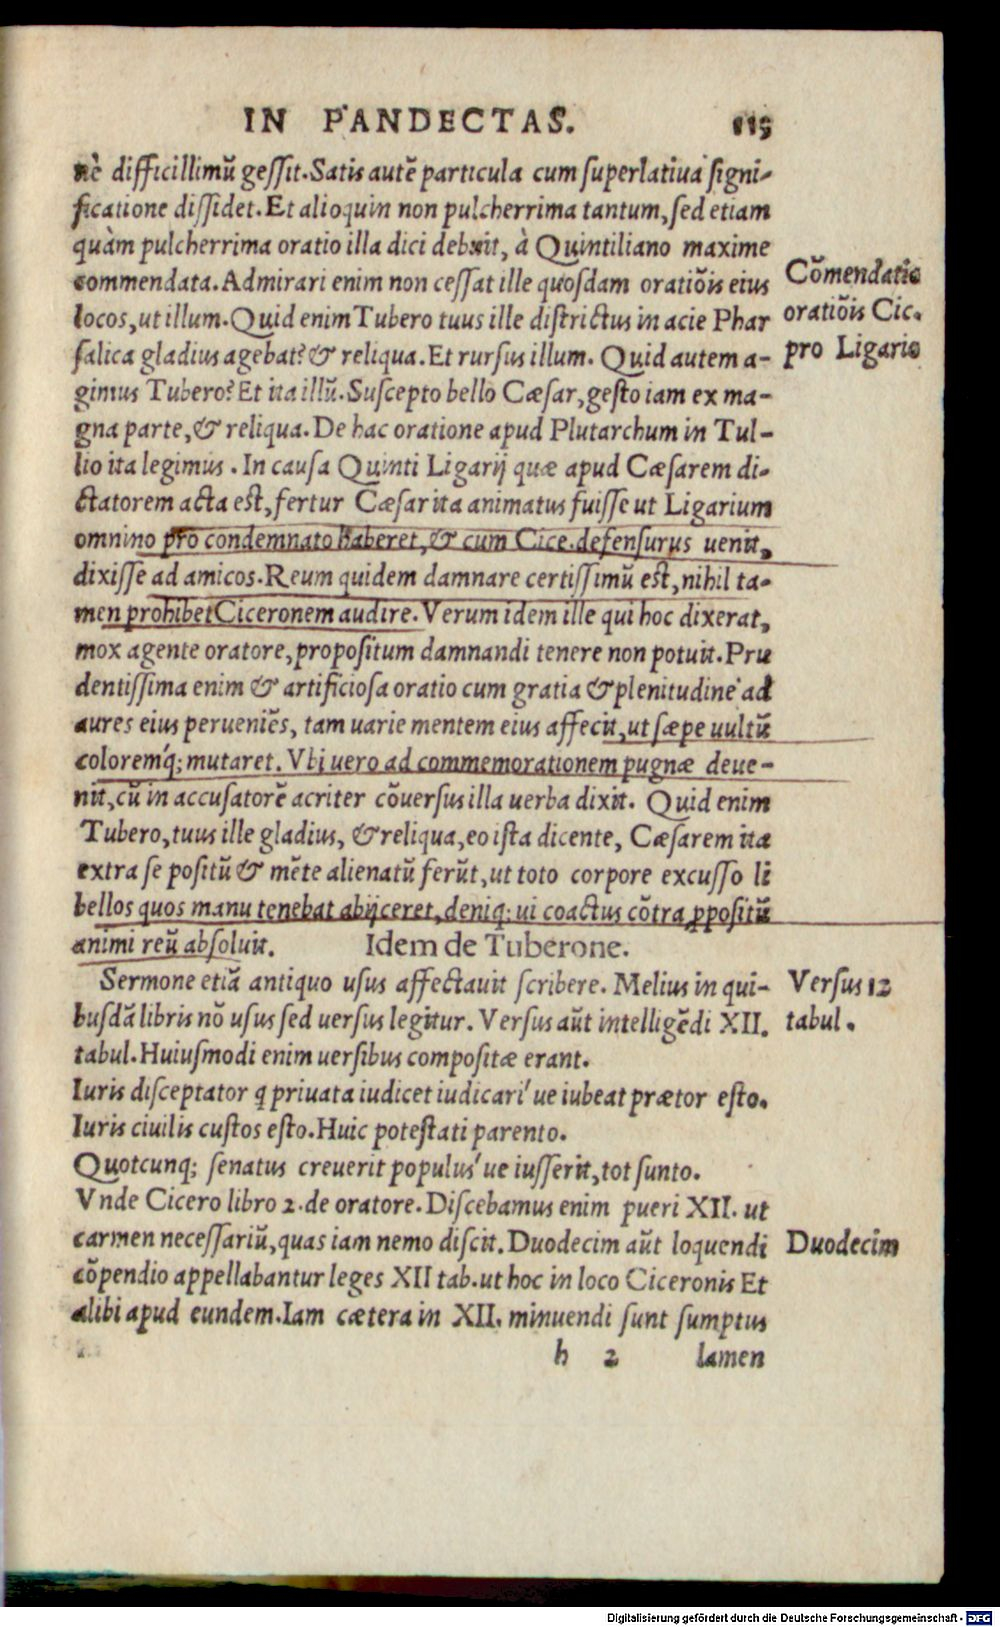 IN PANDECTAS. 115
nè difficillimū gessit. Satis autē particula cum superlatiua signi-
ficatione dissidet. Et alioquin non pulcherrima tantum, sed etiam
quàm pulcherrima oratio illa dici debuit, à Quintiliano maxime
commendata. Admirari enim non cessat ille quosdam oratiōis eius
locos, ut illum. Quid enim Tubero tuus ille districtus in acie Phar
salica gladius agebat? & reliqua. Et rursus illum. Quid autem a-
gimus Tubero? Et ita illū. Suscepto bello Cæsar, gesto iam ex ma-
gna parte, & reliqua. De hac oratione apud Plutarchum in Tul-
lio ita legimus. In causa Quinti Ligarij quæ apud Cæsarem di-
ctatorem acta est, fertur Cæsar ita animatus fuisse ut Ligarium
omnino pro condemnato haberet, & cum Cice. defensurus uenit,
dixisse ad amicos. Reum quidem damnare certissimū est, nihil ta-
men prohibet Ciceronem audire. Verum idem ille qui hoc dixerat,
mox agente oratore, propositum damnandi tenere non potuit. Pru
dentissima enim & artificiosa oratio cum gratia & plenitudine ad
aures eius perueniēs, tam uarie mentem eius affecit, ut sæpe uultū
coloremq́; mutaret. Vbi uero ad commemorationem pugnæ deue-
nit, cū in accusatorē acriter cōuersus illa uerba dixit. Quid enim
Tubero, tuus ille gladius, & reliqua, eo ista dicente, Cæsarem ita
extra se positū & mēte alienatū ferūt, ut toto corpore excusso li
bellos quos manu tenebat abijceret, deniq; ui coactus cōtra ꝓpositū
animi reū absoluit. Idem de Tuberone.
Sermone etiā antiquo usus affectauit scribere. Melius in qui-
busdā libris nō usus sed uersus legitur. Versus aūt intelligēdi XII.
tabul. Huiusmodi enim uersibus compositæ erant.
Iuris disceptator q priuata iudicet iudicari´ ue iubeat prætor esto.
Iuris ciuilis custos esto. Huic potestati parento.
Quotcunq; senatus creuerit populus´ ue iusserit, tot sunto.
Vnde Cicero libro 2. de oratore. Discebamus enim pueri XII. ut
carmen necessariū, quas iam nemo discit. Duodecim aūt loquendi
cōpendio appellabantur leges XII tab. ut hoc in loco Ciceronis Et
alibi apud eundem. Iam cætera in XII. minuendi sunt sumptus
h 2 lamen
Cōmendatio
oratiōis Cic.
pro Ligario
Versus 12
tabul.
Duodecim
Digitalisierung gefördert durch die Deutsche Forschungsgemeinschaft - DFG